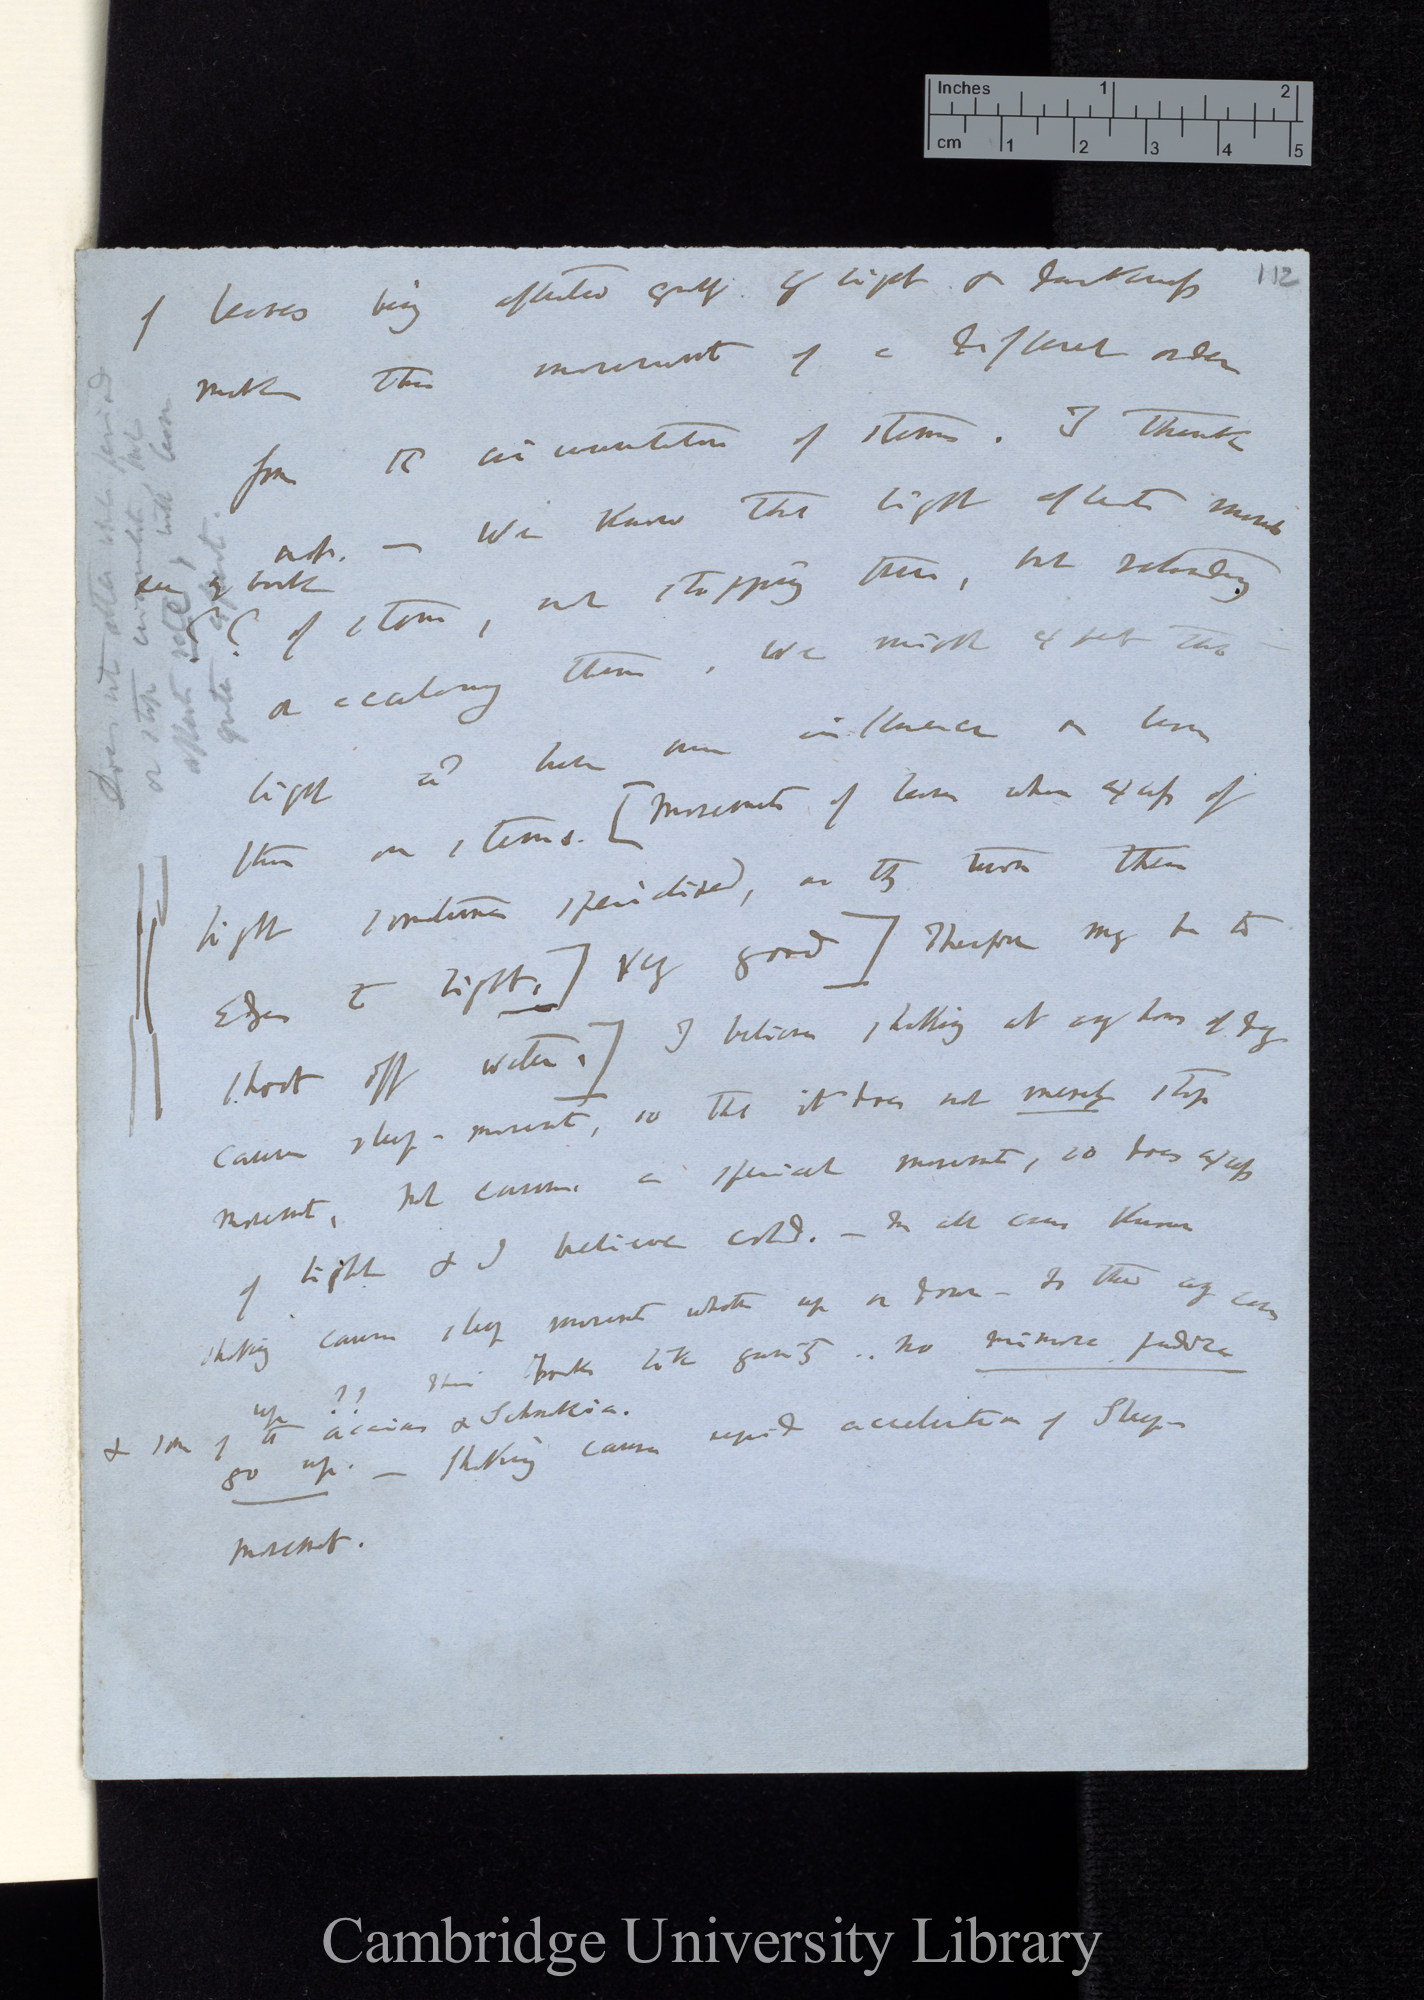 Inches 1 2
cm 1 2 3 4 5
112
of leaves being affected greatly by light & darkness
makes this movement of a different order
from the circumnutation of stems. I think
not. — We know that light affects
see back
of stems, not stopping them, but retarding
or accelerating them, we might expect that
light wd have more influence on leaves
than on stems. [Movements of leaves when excess of
light sometimes specialised, as they turn their
Edges to light.] Very good] Therefore may be to
shoot off water.] I believe shaking at any hour of day
causes sleep-movement, so that it does not merely stop
movement, but causes a special movement, so does excess
of light & I believe cold. — In all cases known
shaking causes sleep movements whether up or down — Is there any case
up ?? This looks like gravity .. no mimosa pudica
& some of the acacias & Schrankia.
go up. — Shaking causes rapid acceleration of Sleep
movement.
Does not alter whole period
or stop circumnutation, but
affects rate, with leaves
quite different.
Cambridge University Library